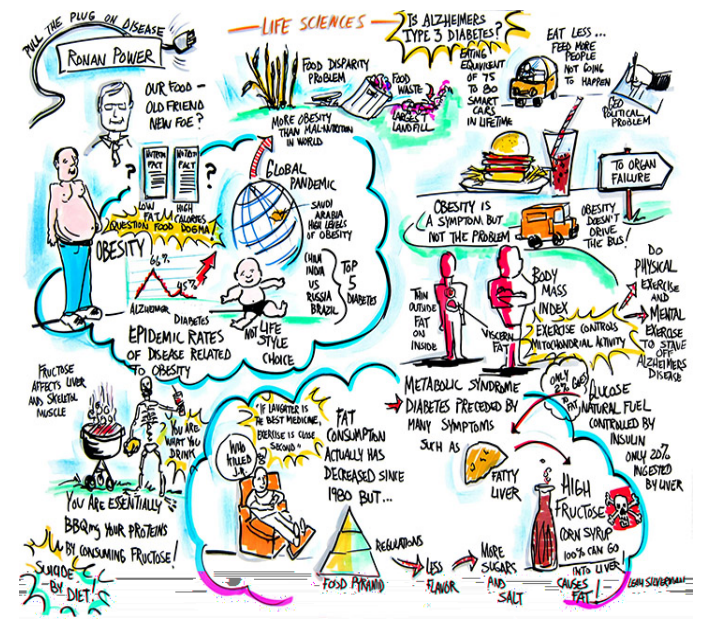 PULL THE PLUG ON DISEASE
RONAN POWER
LIFE SCIENCES
IS ALZHEIMERS
TYPE 3 DIABETES?
EATING
EQUIVALENT
OF 75
TO 80
SMART
CARS
IN LIFETIME
EAT LESS...
FEED MORE
PEOPLE
NOT GOING
TO HAPPEN
GEO
POLITICAL
PROBLEM
OUR FOOD -
OLD FRIEND
NEW FOE?
FOOD DISPARITY
PROBLEM
FOOD
WASTE
LARGEST
LANDFILL
MORE OBESITY
THAN MALNUTRITION
IN WORLD
? NUTRITION
FACT
NUTRITION
FACT ?
LOW
FAT
HIGH
CALORIES
QUESTION FOOD DOGMA!
GLOBAL
PANDEMIC
SAUDI
ARABIA
HIGH LEVELS
OF OBESITY
OBESITY
66%
45%
ALZHEIMER
DIABETES
CHINA
INDIA
US
RUSSIA
BRAZIL
TOP
5
DIABETES
NOT LIFE
STYLE
CHOICE
EPIDEMIC RATES
OF DISEASE RELATED
TO OBESITY
TO ORGAN
FAILURE
OBESITY IS
A SYMPTOM BUT
NOT THE PROBLEM
OBESITY
DOESN'T
DRIVE
THE BUS!
THIN
OUTSIDE
FAT ON
INSIDE
VISCERAL
FAT
BODY
MASS
INDEX
EXERCISE CONTROLS
MITOCHONDRIAL ACTIVITY
DO
PHYSICAL
EXERCISE
AND
MENTAL
EXERCISE
TO STAVE
OFF
ALZHEIMERS
DISEASE
FRUCTOSE
AFFECTS LIVER
AND SKELETAL
MUSCLE
YOU ARE
WHAT YOU
DRINK
YOU ARE ESSENTIALLY
BBQing YOUR PROTEINS
BY CONSUMING FRUCTOSE!
SUICIDE
BY
DIET!
"IF LAUGHTER IS
THE BEST MEDICINE,
EXERCISE IS CLOSE
SECOND"
WHO
KILLED
FAT
CONSUMPTION
ACTUALLY HAS
DECREASED SINCE
1980 BUT...
FOOD PYRAMID
REGULATIONS
LESS
FLAVOR
MORE
SUGARS
AND
SALT
CAUSES
FAT!
METABOLIC SYNDROME
DIABETES PRECEDED BY
MANY SYMPTOMS
SUCH AS
FATTY
LIVER
ONLY
TO FAT
GLUCOSE
NATURAL FUEL
CONTROLLED
BY INSULIN
ONLY 20%
INGESTED
BY LIVER
HIGH
FRUCTOSE
CORN SYRUP
100% CAN GO
INTO LIVER